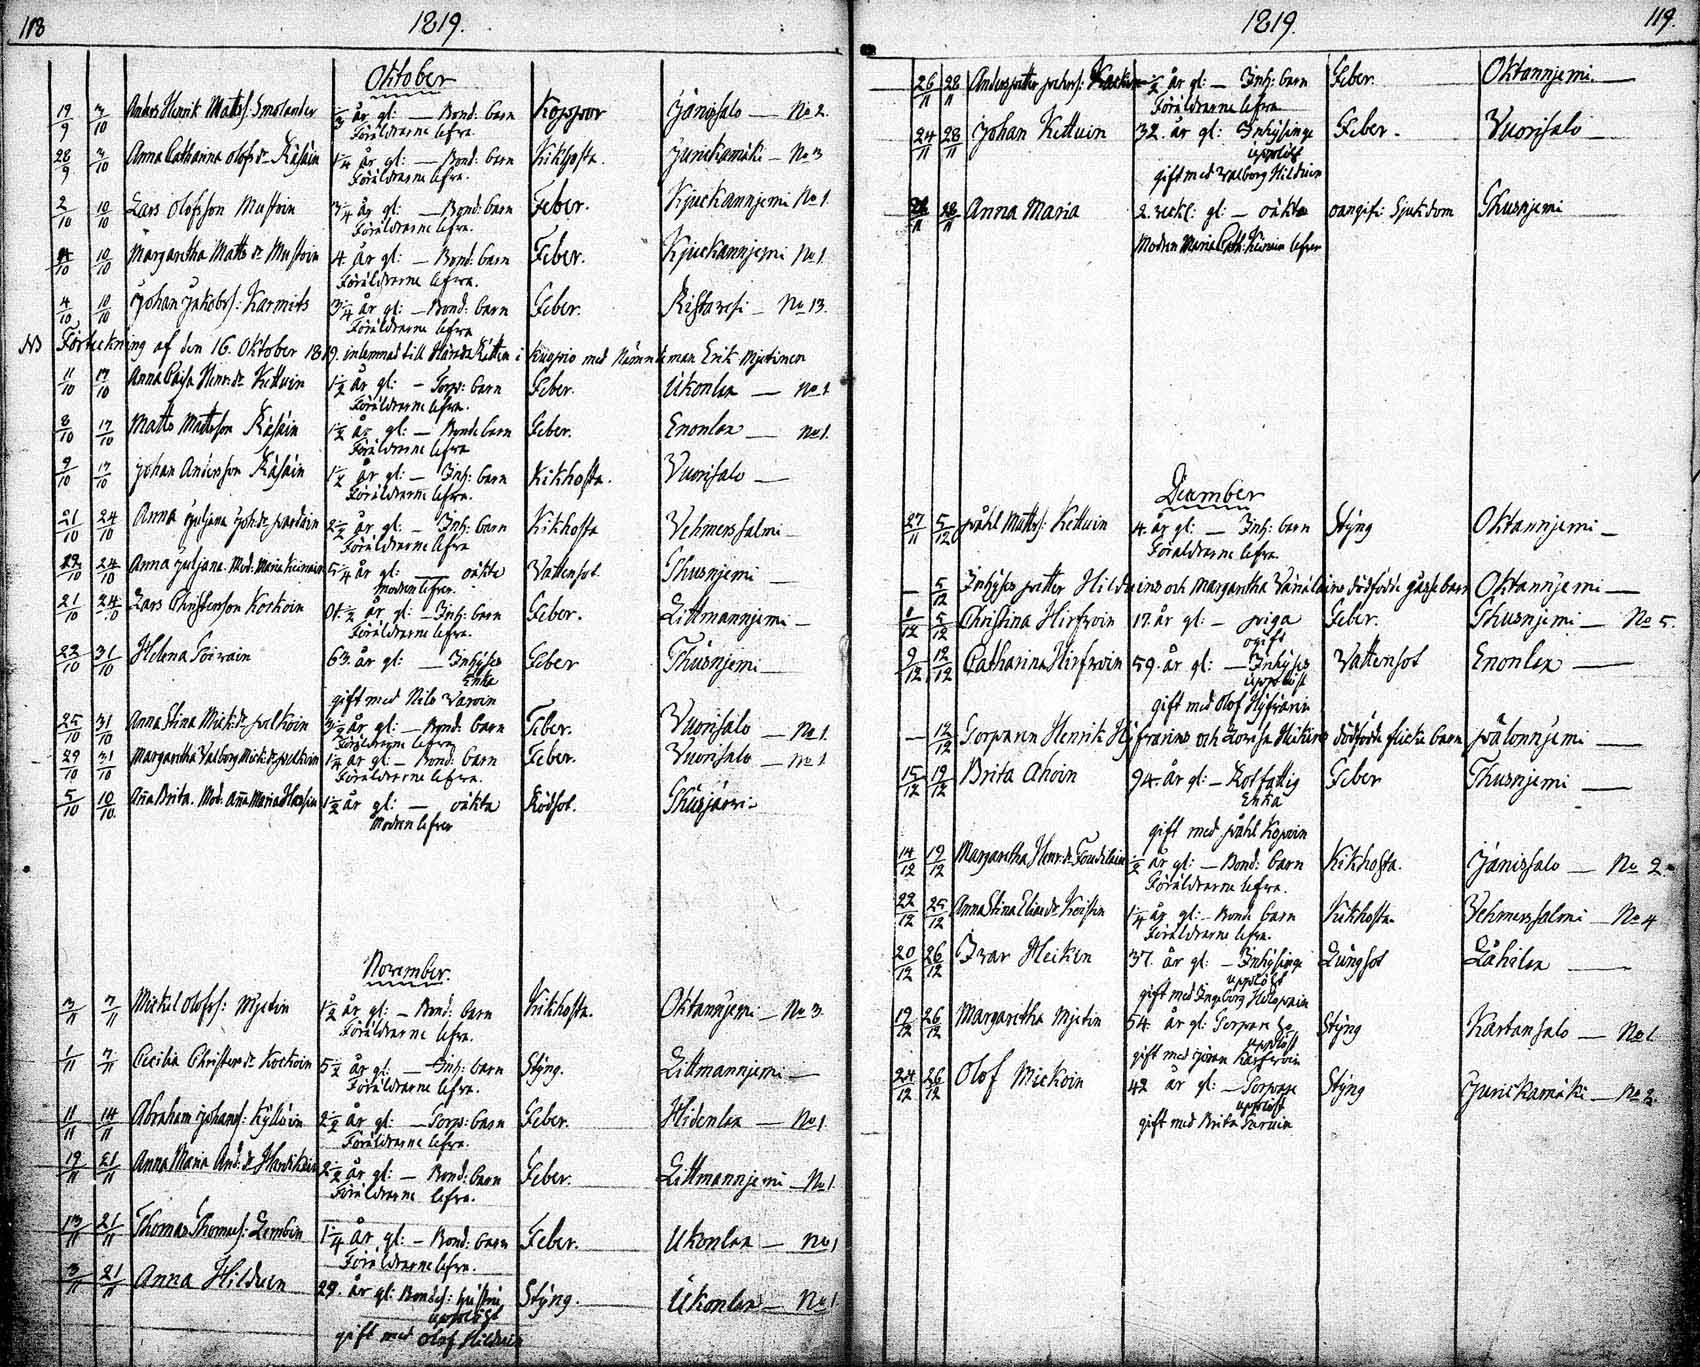 118
1819.
Oktober
19/9 3/10 Anders Henrik Matts: Smolander ½ år gl: — Bond: barn Koppor Jänissalo — No 2.
Föräldrarne lefva.
28/9 3/10 Anna Catharina Olofs dr Räsäin 1¼ år gl: — Bond: barn Kikhosta. Jurickamäki — No 3
Föräldrarne lefva.
2/10 10/10 Lars Olofsson Mustoin 3¼ år gl: — Bond: barn Feber. Kjuckannjemi No 1.
Föräldrarne lefva.
10/10 Margaretha Matts dr Mustoin 4. år gl: — Bond: barn Feber. Kjuckannjemi No 1.
Föräldrarne lefva.
4/10 10/10 Johan Jakobs: Karmits 3¼ år gl: — Bond: barn Feber. Ristavesi — No 13.
Föräldrarne lefva
NB Förteckning af den 16. Oktober 1819. inlemnad till Härads Rätten i Kuopio med Nämndeman Erik Mjetinen
11/10 17/10 Anna Caisa Henr: dr Kettuin 1½ år gl: — Torp: barn Feber. Ukonlax — No 1
Föräldrarne lefva.
8/10 17/10 Matts Mattsson Räsäin 1½ år gl: — Bonde barn Feber. Enonlax — No 1.
Föräldrarne lefva
9/10 17/10 Johan Andersson Räsäin 1½ år gl: — Inh: barn Kikhosta. Vuorisalo —
Föräldrarne lefva.
21/10 24/10 Anna Juljana Joh: dr 2½ år gl: — Inh: barn Kikhosta Vehmersalmi —
Föräldrarne lefva
22/10 24/10 Anna Juljana. Mod. Maria Keinain 5¼ år gl: — oäkta Vattensot. Thusnjemi —
Modren lefver.
21/10 24/10 Lars Christersson Koskoin ½ år gl: — Inh: barn Feber. Littmannjemi —
Föräldrarne lefva.
22/10 31/10 Helena Toivain 63. år gl: — Inhyses Feber Thusnjemi —
Enka
gift med Nils Varoin
25/10 31/10 Anna Stina Mick: dr 3½ år gl: — Bond: barn Feber. Vuorisalo — No 1.
Föräldrarne lefva
29/10 31/10 Margaretha Valborg Mick: dr 1¼ år gl: — Bond: barn Feber. Vuorisalo — No 1
Föräldrarne lefva.
5/10 10/10. Aña Brita. Mod. Aña Maria 1½ år gl: — oäkta Rödsot. Thusjärvi —
Modren lefver
November.
3/11 7/11 Mickel Olofss: Mjetin 1½ år gl: — Bond: barn Kikhosta. Oktannjemi — No 3.
Föräldrarne lefva.
1/11 7/11 Cecilia Christers dr Koskoin 5½ år gl: — Inh: barn Styng. Littmannjemi —
Föräldrarne lefva.
11/11 14/11 Abraham Johanss: Kyllöin 2½ år gl: — Torp: barn Feber. Hidenlax — No 1.
Föräldrarne lefva.
19/11 21/11 Anna Maria And: dr Hardikain 2½ år gl: — Bond: barn Feber. Littmannjemi — No 1
Föräldrarne lefva.
13/11 21/11 Thomas Thomass: Lembin 1¼ år gl: — Bond: barn Feber. Ukonlax — No 1
Föräldrarne lefva.
3/11 21/11 Anna Hilduin 29. år gl: Bondes: hustru Styng. Ukonlax — No 1
upplöst
gift med Olof Hilduin
1819.
119.
26/11 28/11 Anders Petter ½ år gl: — Inh: barn Feber. Oktannjemi. —
Föräldrarne lefva
24/11 28/11 Johan Kettuin 32. år gl: Inhysinge Feber. Vuorisalo —
upplöst
gift med Valborg Hilduin
28/11 Anna Maria 2. veck: gl: — oäkta oangif: Sjukdom Thusnjemi —
Modren Maria Cath: Keinain lefver
December
27/11 5/12 Påhl Mattss: Kettuin 4. år gl: — Inh: barn Styng Oktannjemi —
Föräldrarne lefva
— 5/12 Inhyses Petter Hilduins och Margaretha Väniläins dödfödde gosse barn Oktannjemi —
1/12 5/12 Christina Hirfvoin 17. år gl: — piga Feber. Thusnjemi — No 5.
ogift
9/12 12/12 Catharina Hirfvoin 59. år gl: — Inhyses Vattensot Enonlax —
upplöst
gift med Olof Hyfvärin
— 12/12 Torparen Henrik Hyfvärins och Lovisa Heikins dödfödde flicke barn Pälonnjemi —
15/12 19/12 Brita Ahoin 94. år gl: — Rotfattig Feber Thusnjemi —
Enka
gift med Påhl Kopoin
14/12 19/12 Margaretha Henr: dr ½ år gl: — Bond: barn Kikhosta. Jänissalo — No 2.
Föräldrarne lefva.
22/12 25/12 Anna Stina Elias dr 1¼ år gl: — Bonde barn Kikhosta. Vehmersalmi — No 4
Föräldrarne lefva.
20/12 26/12 Ivar Heiken 37. år gl: — Inhysinge Lungsot Lähilax —
upplöst
gift med Ingeborg Holopain
19/12 26/12 Margaretha Mjetin 54 år gl: Torpare Styng Kartansalo — No 1
upplöst
gift med Göran Kärfvoin
24/12 26/12 Olof Mickoin 42 år gl: — Torpare Styng Jurickamäki — No 2.
upplöst
gift med Brita Turuin